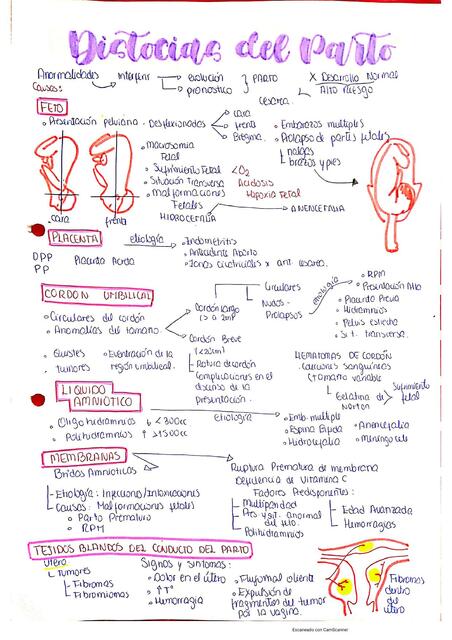 Distocias del Parto
Anormalidades → interferir → evolución } PARTO X Desarrollo Normal
→ pronostico Alto riesgo
Causas: Cesarea.
FETO
• Presentación pelviana. Desflexionadas → cara
→ frente
→ Bregma.
• Embarazos multiples
• Prolapso de partes fetales
nalgas
brazos y pies
• Macrosomia
Fetal
• Sufrimiento Fetal <O2
• Situación Transversa Acidosis
• Malformaciones Hipoxia Fetal
Fetales
HIDROCEFALIA
ANENCEFALIA
cara frente
PLACENTA etiología → • Endometritis
• Antecedente Aborto
• Zonas cicatriciales x ant. cesarea.
DPP Placenta Acreta
PP
CORDÓN UMBILICAL
• Circulares del cordón
• Anomalías del tamaño.
Cordón Largo
Circulares
Nudos
Prolapsos
etiología
• RPM
• Presentación Alta
• Placenta Previa
• Hidramnios
• Pelvis estrecha
• Sit. transversa.
Cordón Breve
Rotura de cordón
Complicaciones en el
descenso de la
presentación.
• Quistes • Eventración de la
• Tumores región umbilical.
HEMATOMAS DE CORDÓN
Tamaño variable
Gelatina de
Warton
Sufrimiento
fetal
LIQUIDO
AMNIÓTICO
• Oligohidramnios ↓ <300cc
• Polihidramnios ↑ >1500cc
Etiología
• Emb. multiple • Anencefalia
• Espina Bifida • Meningocele
• Hidrocefalia
MEMBRANAS
Bridas Amnióticas
Etiología: Infecciones/Inflamaciones
Causas: Malformaciones fetales
• Parto Prematuro
• RPM
Ruptura Prematura de membrana
Deficiencia de Vitamina C
Factores Predisponentes:
Multiparidad
Polihidramnios
Edad Avanzada
Hemorragias
TEJIDOS BLANDOS DEL CONDUCTO DEL PARTO
Útero
Tumores
Fibromas
Fibromiomas
Signos y síntomas:
• Dolor en el útero
• ↑T°
• Hemorragia
• Flujo mal oliente
• Expulsión de
fragmentos del tumor
por la vagina.
Fibromas
dentro
del
útero
Escaneado con CamScanner